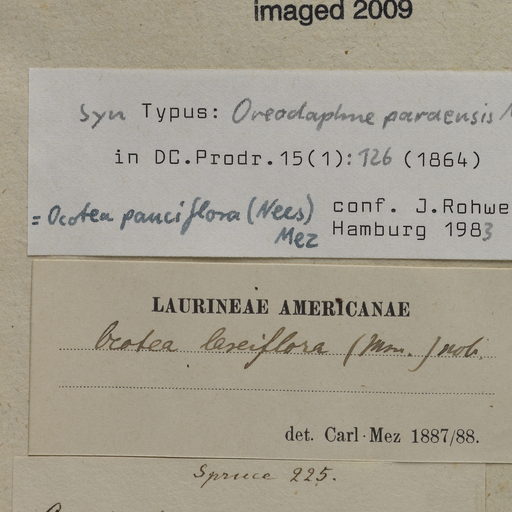 imaged 2009
Syn Typus: Oreodaphne paraensis
in DC.Prodr.15(1):126 (1864)
= Ocotea pauciflora (Nees) conf. J.Rohwe
Mez Hamburg 1983
LAURINEAE AMERICANAE
Ocotea laxiflora (Mssn.) nob.
det. Carl Mez 1887/88.
Spruce 225.